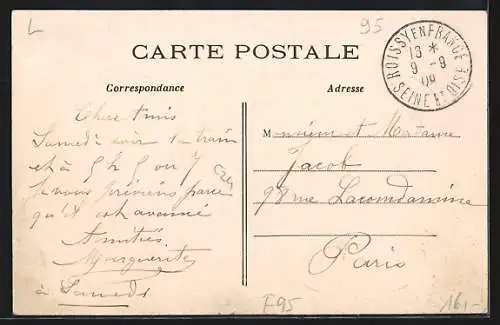 L
95
CARTE POSTALE
ROISSY EN FRANCE
13 *
9 - 9
09
SEINE ET OISE
Correspondance
Adresse
Chers Amis
Samedi soir le train
est à 5 h 5 ou 7
Je vous préviens parce
qu'il est avancé
Amitiés
Marguerite
à Samedi
Monsieur et Madame
Jacob
98 rue Lacondamine
Paris
E95
16,-